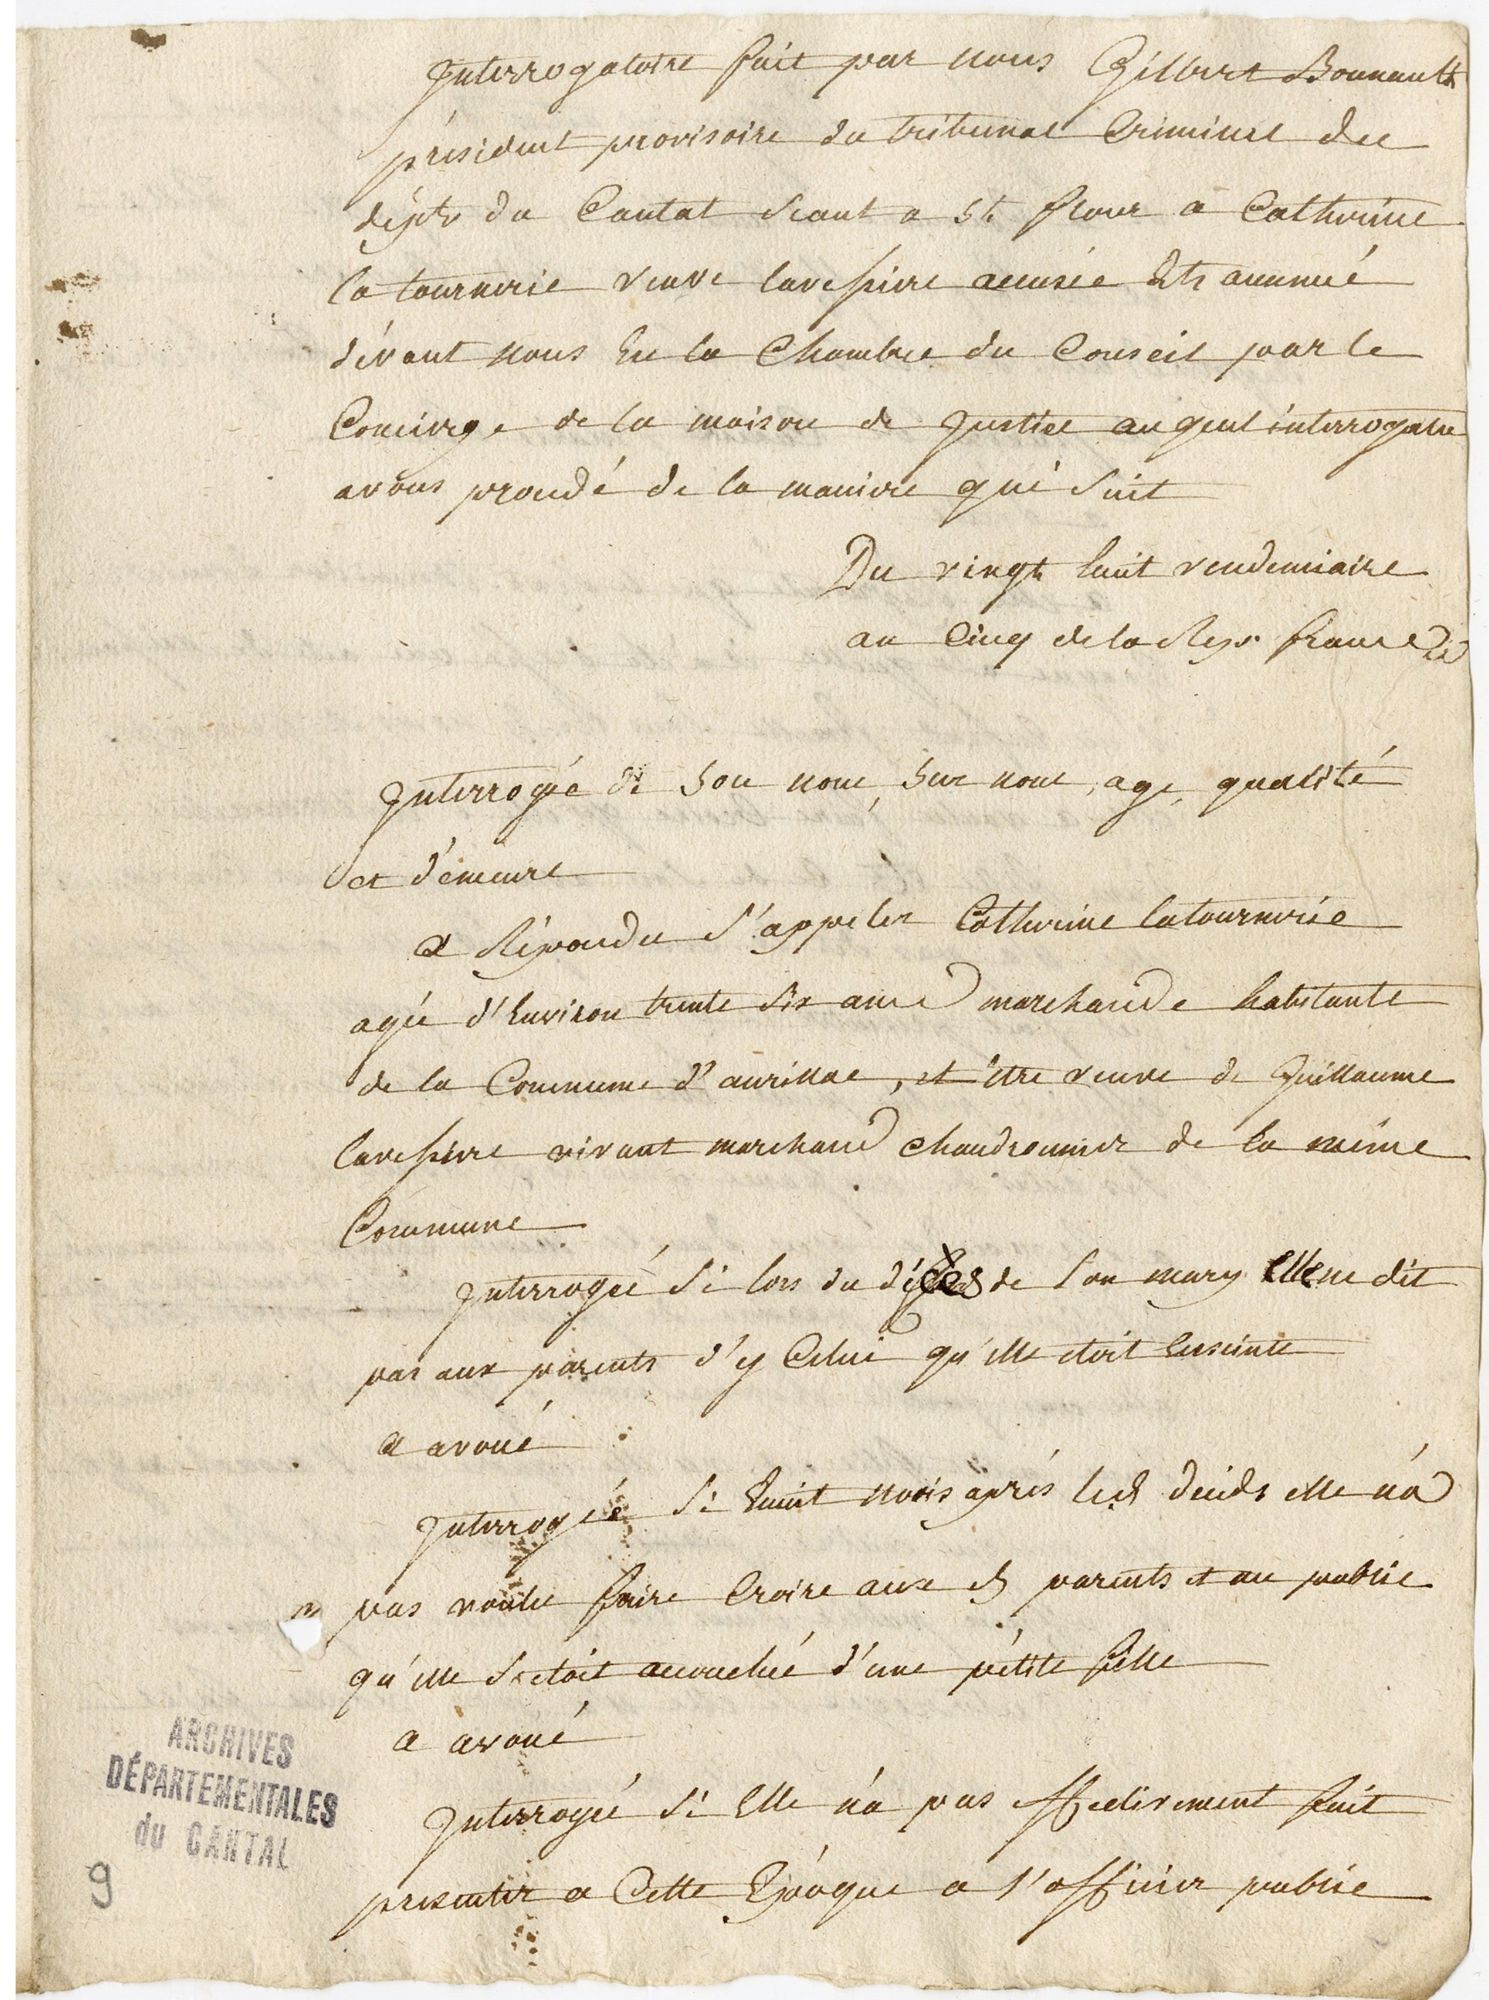 Interrogatoire fait par nous Gilbert Bonnault
président provisoire du tribunal Criminel du
dépt du Cantal seant a St flour a Catherine
la tournerie veuve lavessiere accusée Et amenné
dévant nous En la Chambre du Conseil par le
Concierge de la maison de Justice auquel interrogatre
avons procedé de la maniere qui suit
Du vingt huit vendemiaire
an Cinq de la Rep. francse
Interrogée de son nom, sur nom, age, qualité
et démeure
a Répondu s'appeler Catherine latournerie
agée d'Environ trente six ans marchande habitante
de la Commune d'aurillac, et être veuve de Guillaume
lavessiere vivant marchand chaudronnier de la même
Commune
Interrogée si lors du décès de son mary Elle ne dit
pas aux parents d'y Celui qu'elle etoit Enseinte
a avoué
Interrogée si huit mois aprés led décéds elle n'a
pas voulu faire Croire aux ds parents et au public
qu'elle s'etoit accouchée d'une pétite fille
a avoué
Interrogée si Elle n'a pas effectivement fait
presenter a Cette Epoque a l'officier public
ARCHIVES
DÉPARTEMENTALES
du CANTAL
9